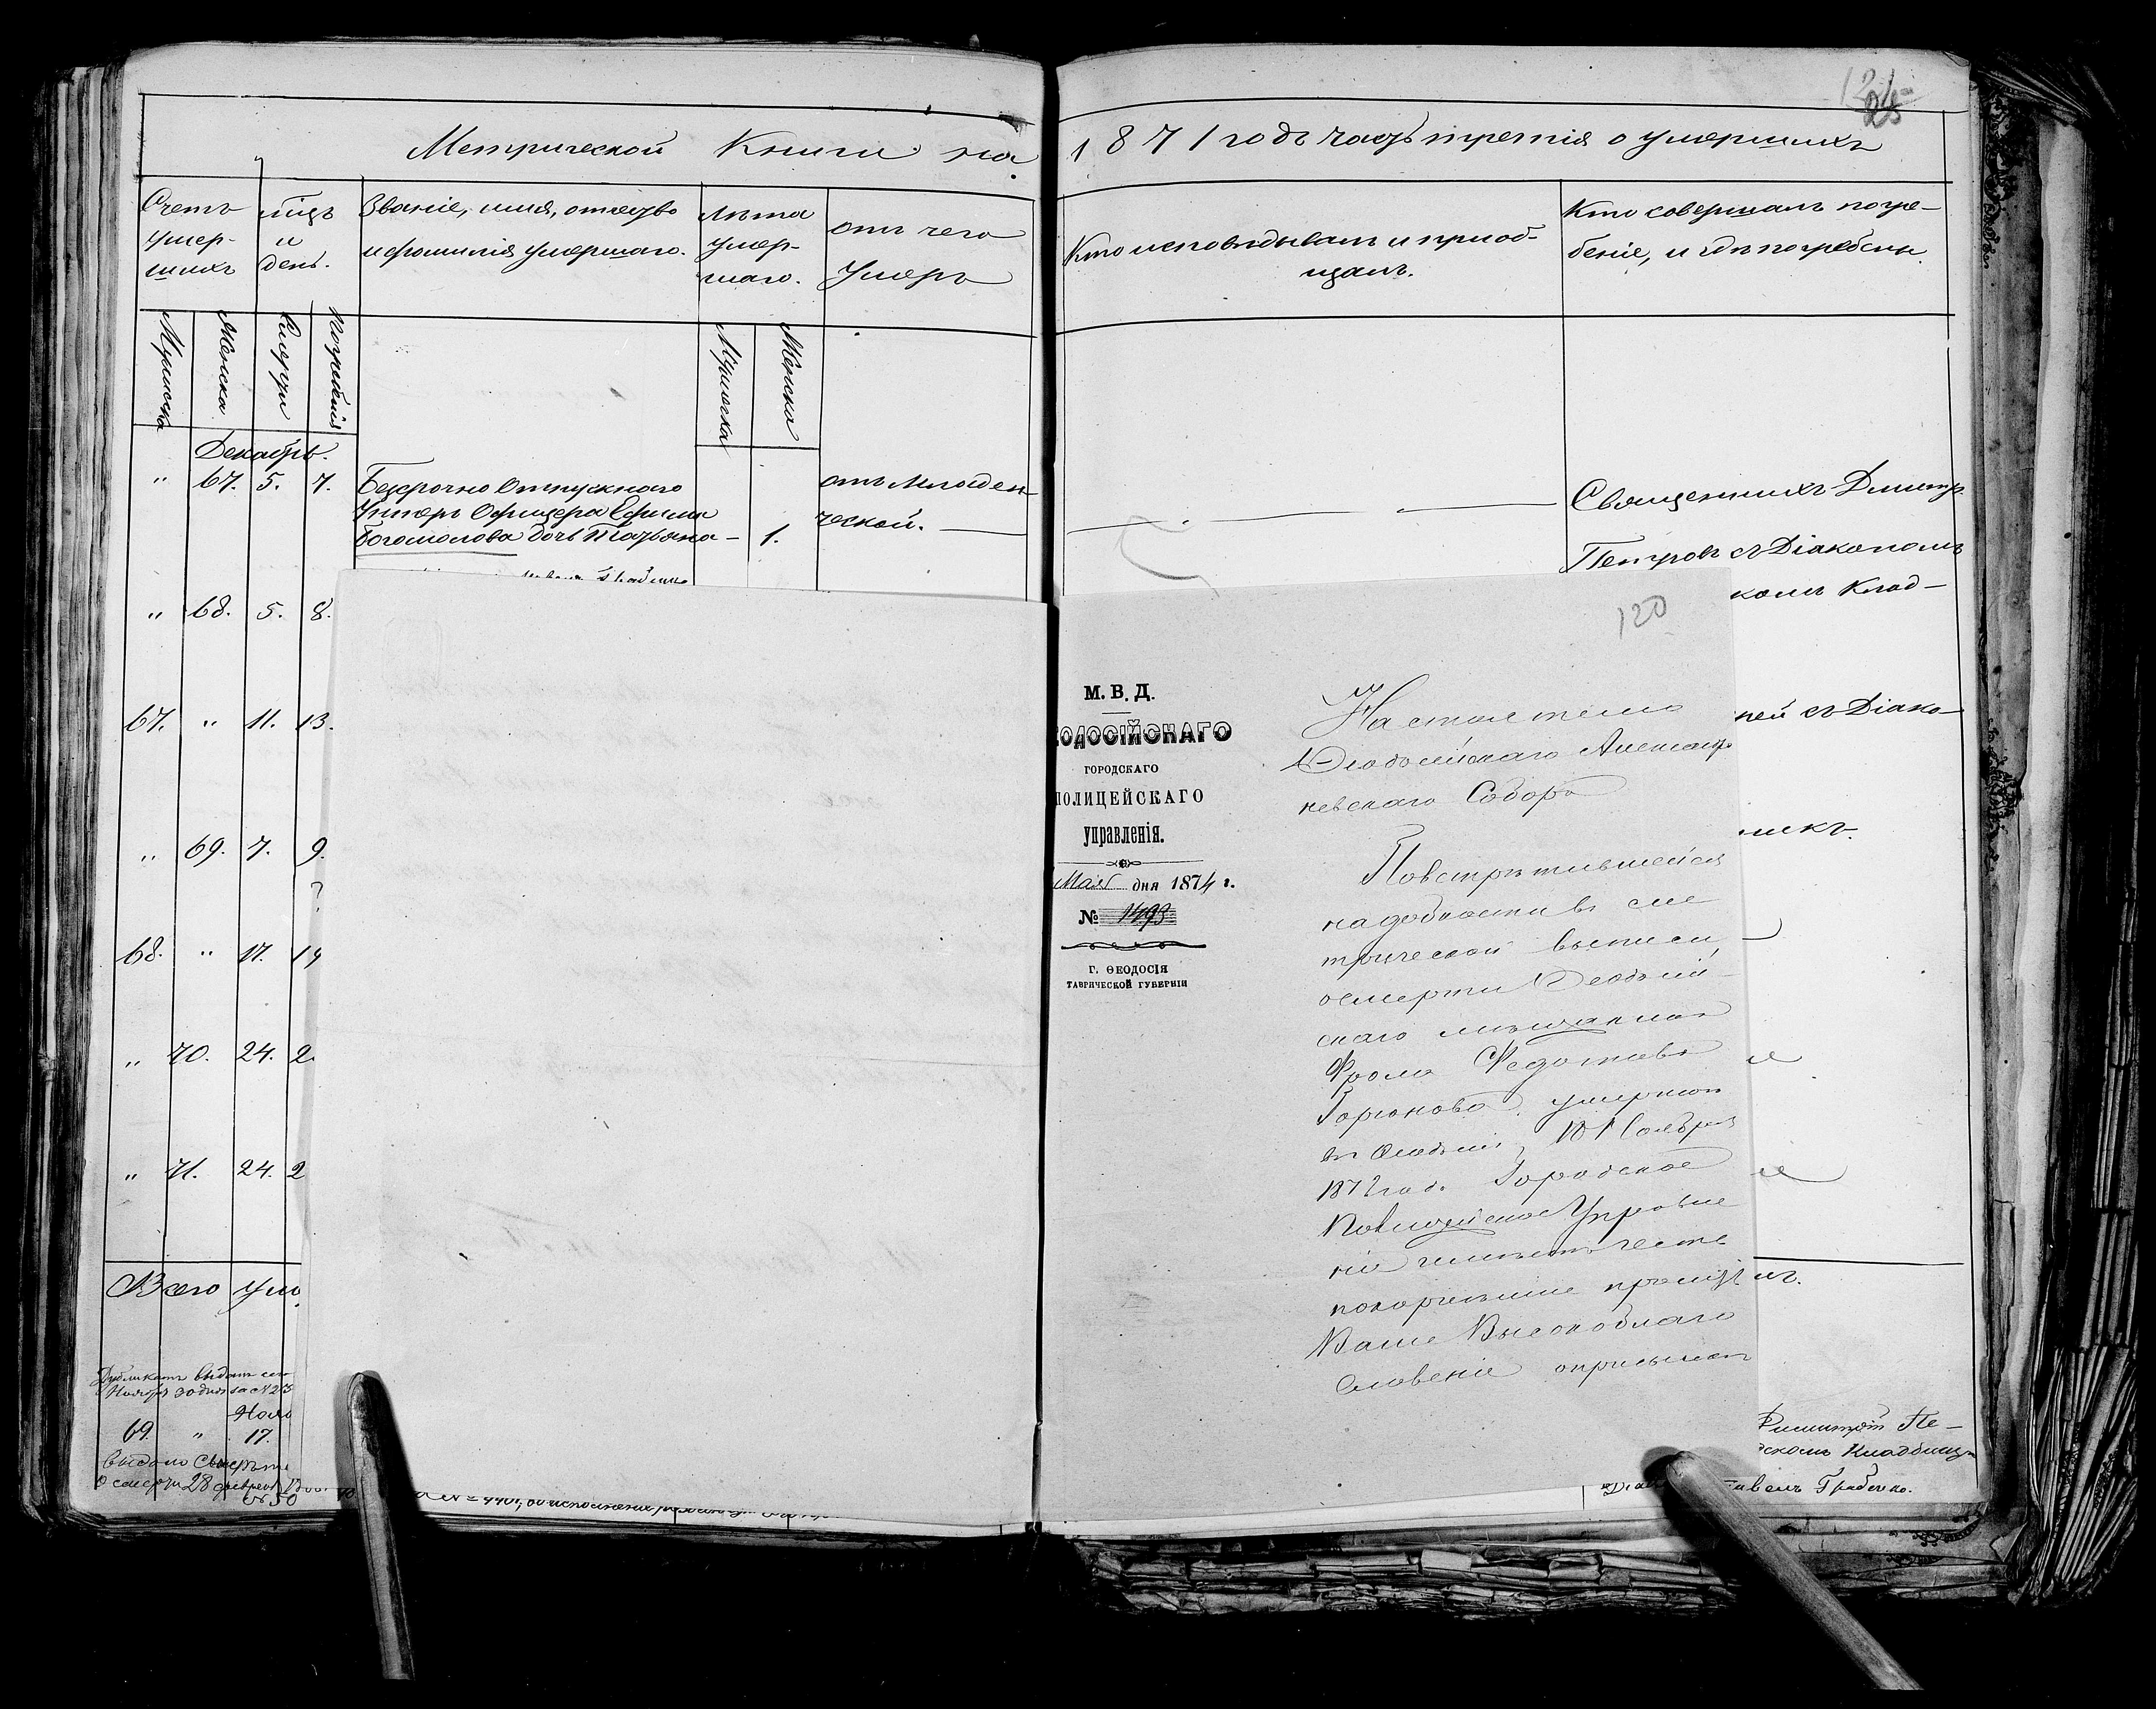 Метрической Книги на 1871 годъ часть третiя о умершихъ
Счетъ умер- шихъ
мѣц и день.
Званiе, имя, отчество
и фамилiя умершаго.
Лѣта умер- шаго.
отъ чего
Умеръ
Кто исповѣдывалъ и приоб-
щалъ.
Кто совершалъ погре-
бенiе, и гдѣ погребены.
Мужеска
Женска
Смерти
Погребенiя
Мужеска
Женска
Декабрь.
" 67. 5. 7.
Безсрочно Отпускнаго
Унтеръ Офицера Ефима
Богомолова дочь Татьяна — 1.
отъ младен-
ческой.
Священникъ Димитр.
Петровъ съ Дiакономъ
комъ Клад-
" 68. 5. 8.
67. " 11. 13.
ней съ Дiако-
" 69. 7. 9.
?
68. " 17. 19
" 70. 24. 2
" 71. 24. 2
Всего уме
Дубликатъ выданъ сего
Ноября 30 дня за № 215
Нояб
69. " 17.
Выдано Свидѣте
о смерти 28 февраля
№ 50
120
М. В. Д.
ЕОДОСIЙСКАГО
ГОРОДСКАГО
ПОЛИЦЕЙСКАГО
управленiя.
Мая дня 1874 г.
№ 1493
Г. ѲЕОДОСIЯ
ТАВРИЧЕСКОЙ ГУБЕРНIИ
Настоятелю
Ѳеодосiйскаго Александр
невскаго Собора
По встрѣтившейся
надобности въ ме
трической выписи
о смерти Ѳеодосiй-
скаго мѣщанина
Фрола Федотова
Горюнова, умершаго
въ Ѳеодосiи, 18 Ноября
1871 года. Городское
Полицейское Управле
нiе имѣетъ честь
покорнѣйше просить
Ваше Высокоблаго
словенiе о присылкѣ
Димитрiй Пе-
дскомъ Кладбищѣ
Павелъ Грабенко.